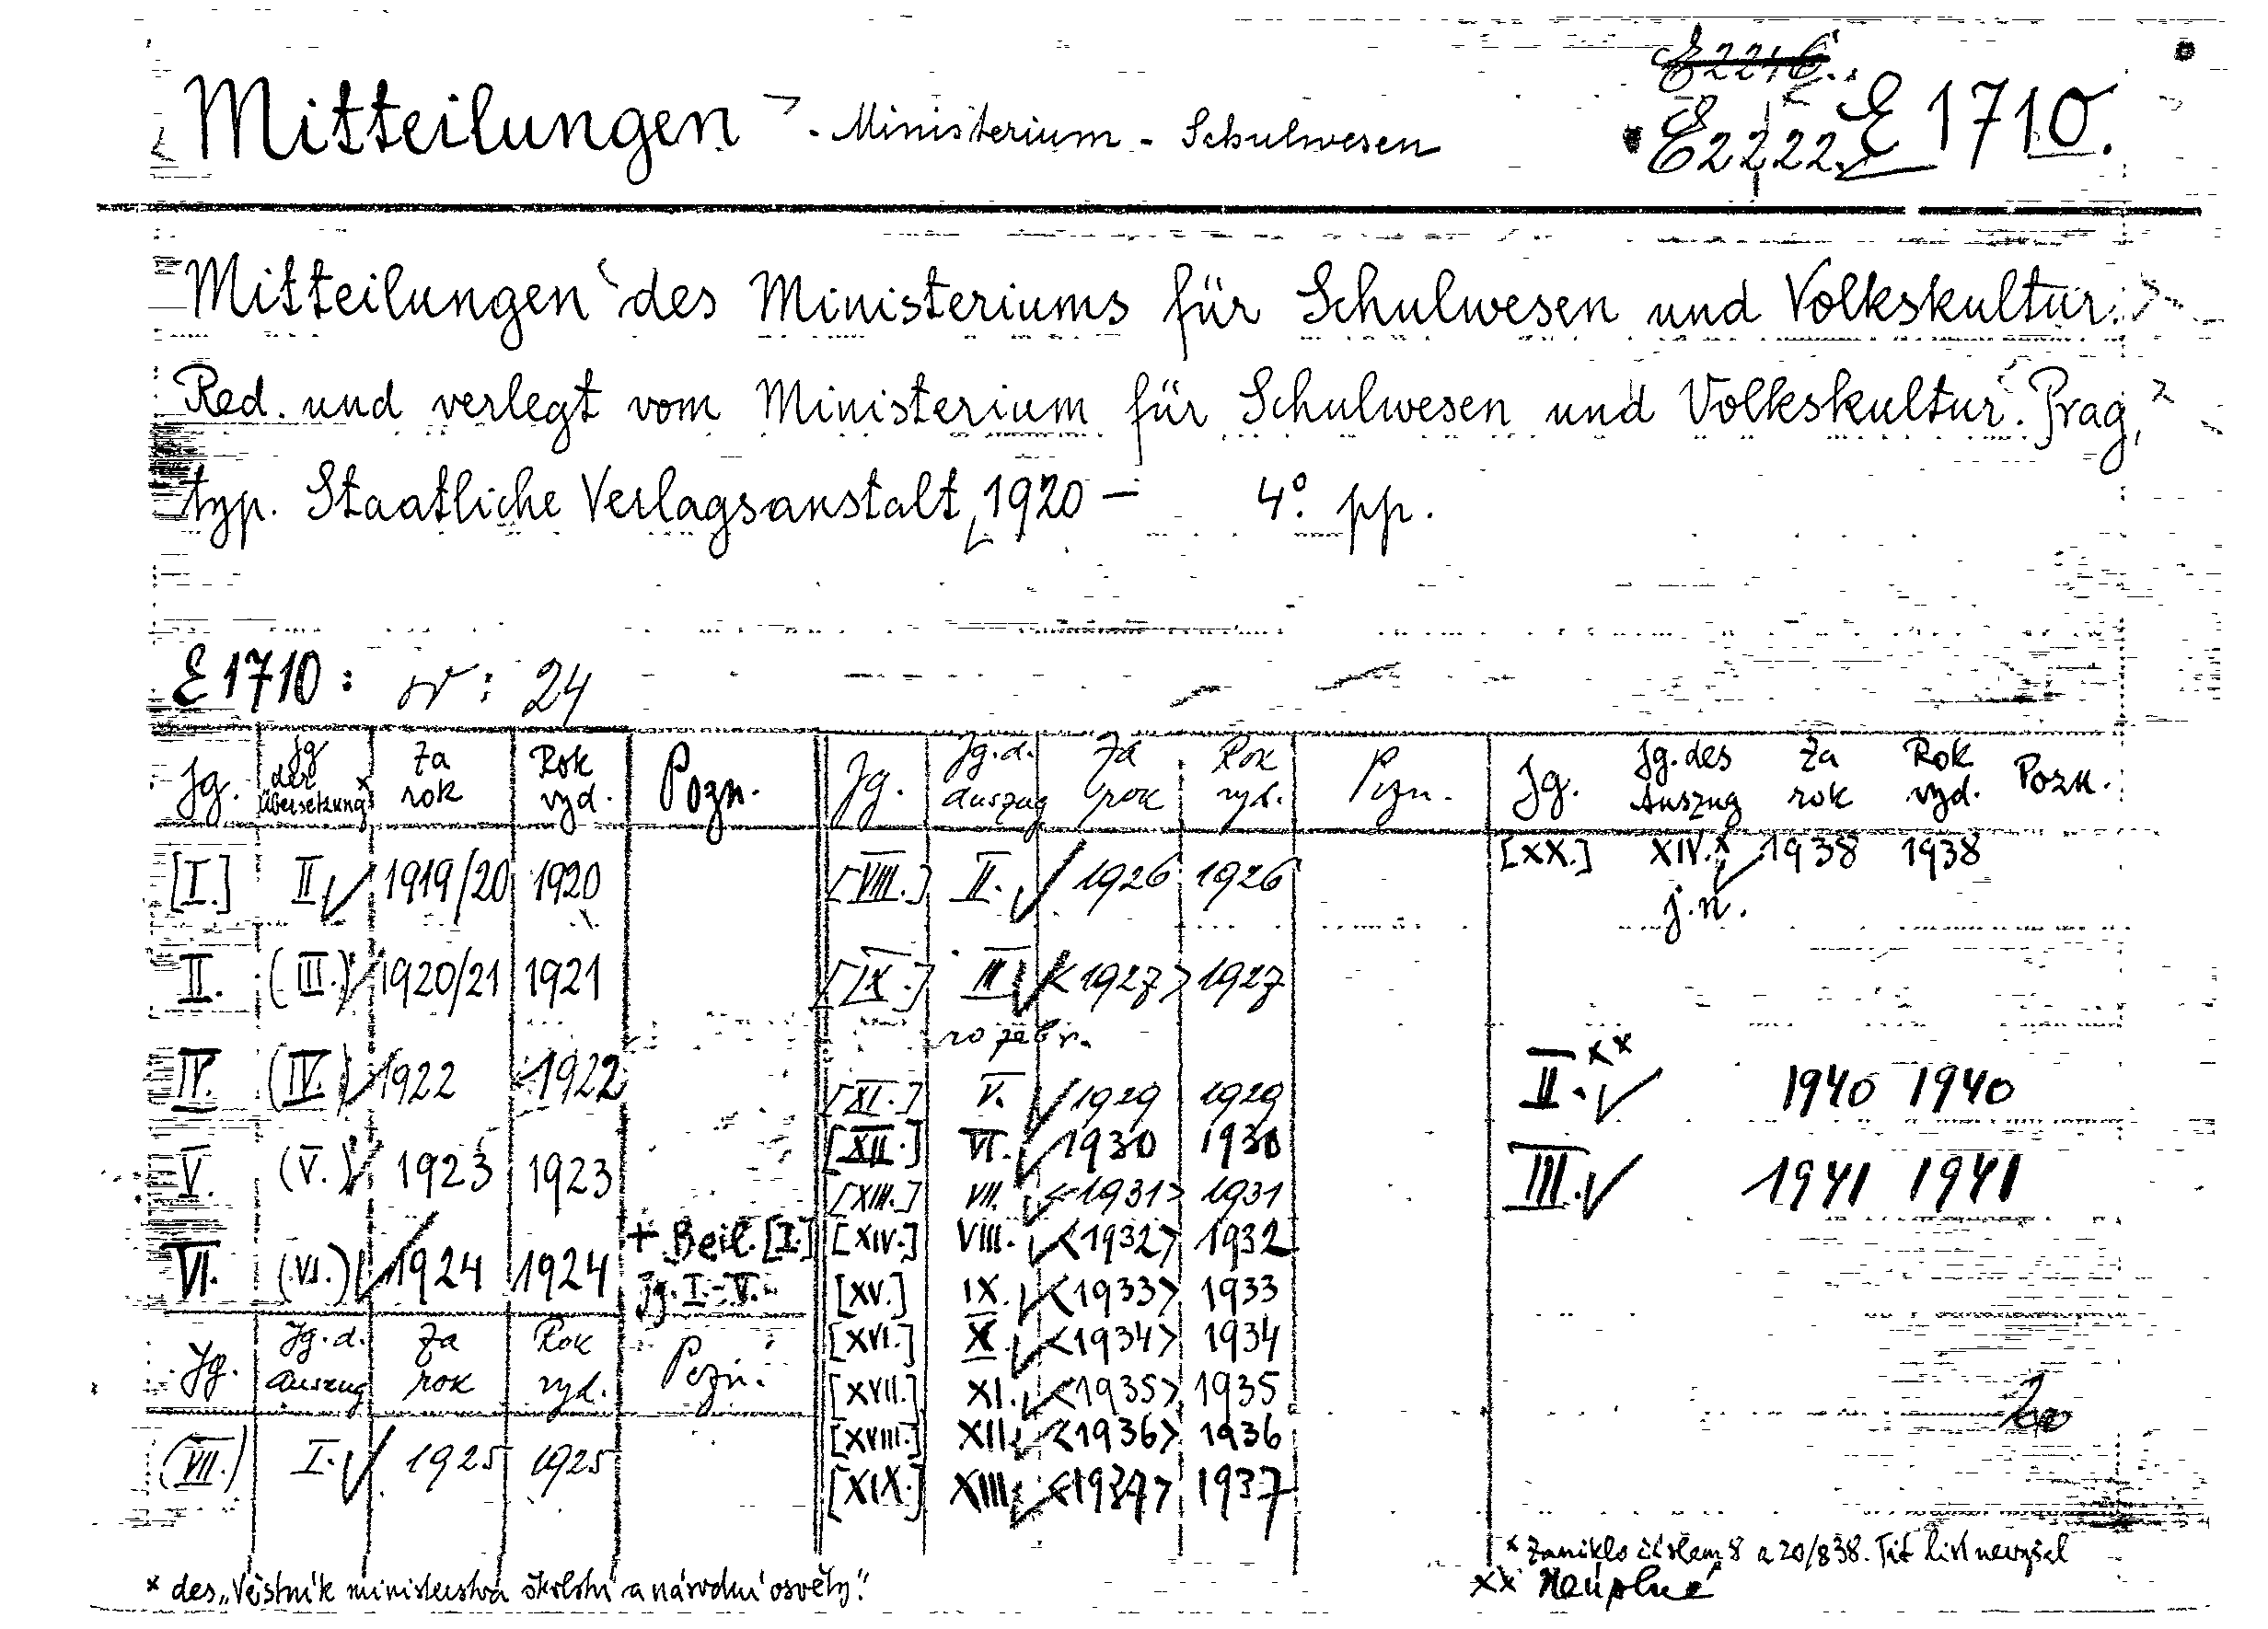 E 2216.
Mitteilungen - Ministerium - Schulwesen
E 2222. E 1710.
Mitteilungen des Ministeriums für Schulwesen und Volkskultur.
Red. und verlegt vom Ministerium für Schulwesen und Volkskultur. Prag,
typ. Staatliche Verlagsanstalt, 1920 — 4°. pp.
E 1710: 24
Jg. Jg der Übersetzung x Za rok Rok vyd. Pozn.
[I.] II 1919/20 1920
II. (III.) 1920/21 1921
IV. (IV.) 1922 1922
V. (V.) 1923 1923
VI. (VI.) 1924 1924 + Beil. [I.] Jg. I.-V.
Jg. Jg. d. Auszug Za rok Rok vyd. Pozn.
(VII.) I. 1925 1925
Jg. Jg. d. Auszug Za rok Rok vyd. Pozn.
[VIII.] II. 1926 1926
[IX.] III <1927> 1927
rozebr.
[XI.] V. 1929 1929
[XII.] VI. 1930 1930
[XIII.] VII. <1931> 1931
[XIV.] VIII. <1932> 1932
[XV.] IX. <1933> 1933
[XVI.] X. <1934> 1934
[XVII.] XI. <1935> 1935
[XVIII.] XII. <1936> 1936
[XIX.] XIII. <1937> 1937
Jg. Jg. des Auszug Za rok Rok vyd. Pozn.
[XX.] XIV. x 1938 1938
j. n.
II. xx 1940 1940
III. 1941 1941
x des „Věstník ministerstva školství a národní osvěty."
x Zaniklo číslem 8 a 20/8 38. Tit list nevyšel
xx Neúplné